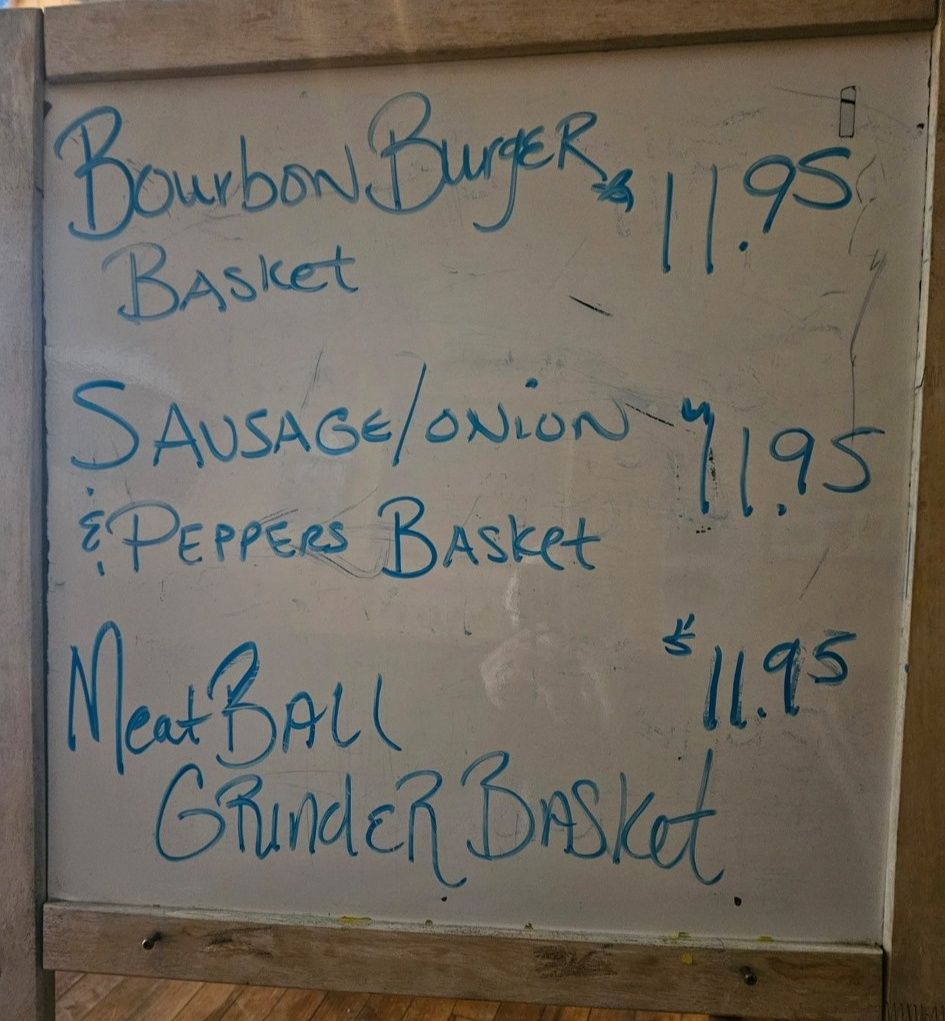 Bourbon Burger $11.95
Basket
Sausage/onion $11.95
& Peppers Basket
MeatBall $11.95
Grinder Basket